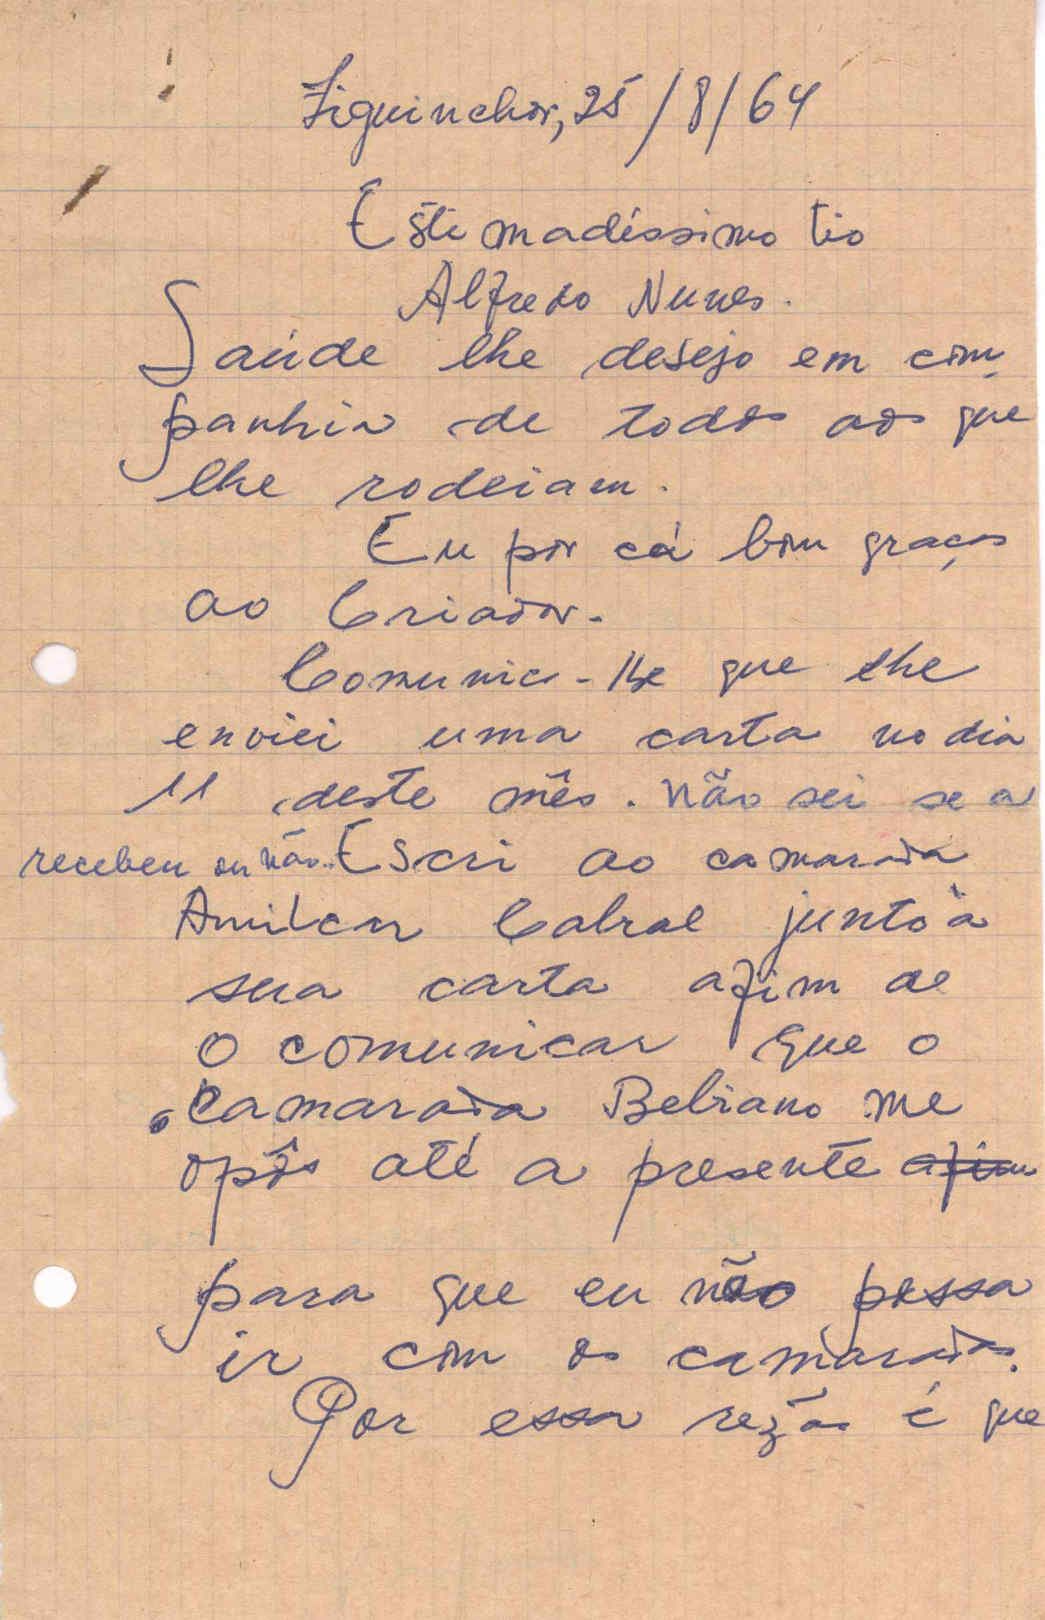 Ziguinchor, 25/8/64
Estimadíssimo tio
Alfredo Nunes.
Saúde lhe desejo em com-
panhia de todos aos que
lhe rodeiam.
Eu por cá bom graças
ao Criador.
Comunico-lhe que lhe
enviei uma carta no dia
11 deste mês. Não sei se a
recebeu ou não. Escri ao camarada
Amilcar Cabral junto à
sua carta afim de
o comunicar que o
camarada Bebiano me
opôs até a presente afim
para que eu não possa
ir com os camaradas.
Por essa rezão é que